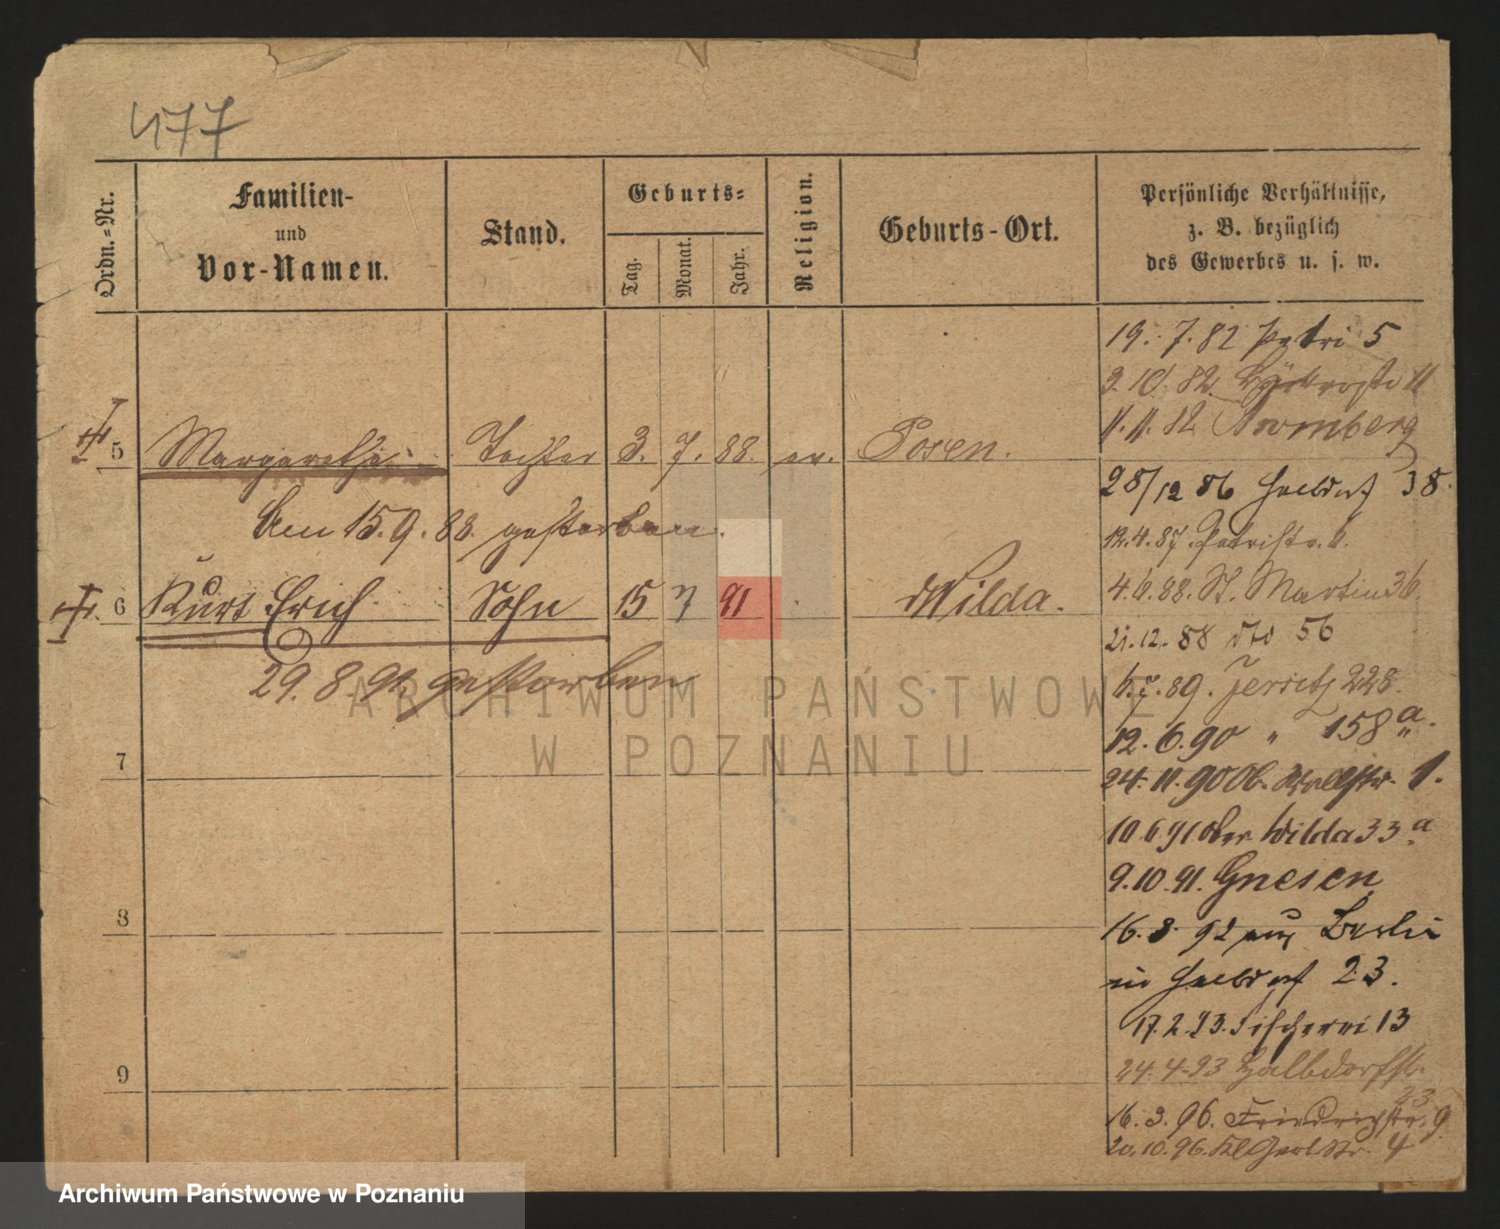 477
Ordn.-Nr.
Familien-
und
Vor-Namen.
Stand.
Geburts-
Tag.
Monat.
Jahr.
Religion.
Geburts-Ort.
Persönliche Verhältnisse,
z. B. bezüglich
des Gewerbes u. s. w.
19. 7. 82 Petri 5
3. 10. 82 11
11. 11. 82
5 Margarethe Tochter 3. 7. 88. ev. Posen.
28/12 86 Halbdorf 38.
Am 15. 9. 88. gestorben.
12. 4. 87. Petristr. 6.
4. 6. 88. St. Martin 36.
6 Kurt Erich Sohn 15 7 91 Wilda.
21. 12. 88 dto 56
29. 8. 91. gestorben
89. Jersitz 228.
12. 6. 90 " 158 a.
7
24. 11. 90 Ob. Wallstr. 1.
10 6 91 Ober Wilda 33 a
9. 10. 91. Gnesen
8
16. 3. 92 aus Berlin
in Halbdorf 23.
17. 2. 93. Fischerei 13
9
24. 4. 93 Halbdorfstr.
23
16. 3. 96. Friedrichstr. 9
20. 10. 96. Kl Gerb.Str. 4
ARCHIWUM PAŃSTWOWE
W POZNANIU
Archiwum Państwowe w Poznaniu